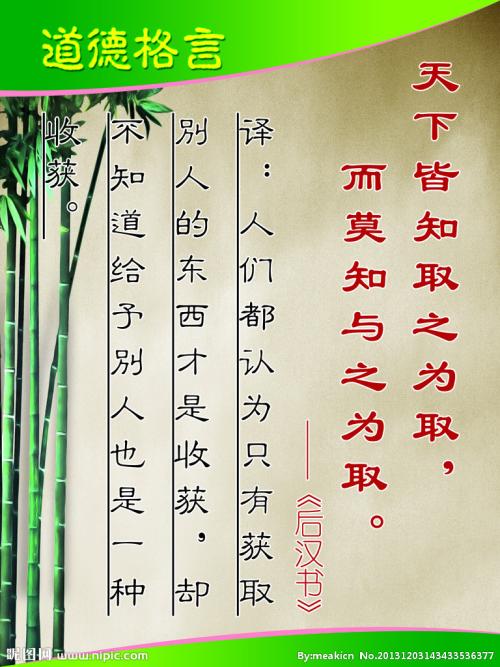 道德格言
天下皆知取之为取，
而莫知与之为取。
——《后汉书》
译：人们都认为只有获取
别人的东西才是收获，却
不知道给予别人也是一种
收获。
昵图网 www.nipic.com
By:meakicn No.20131203143433536377